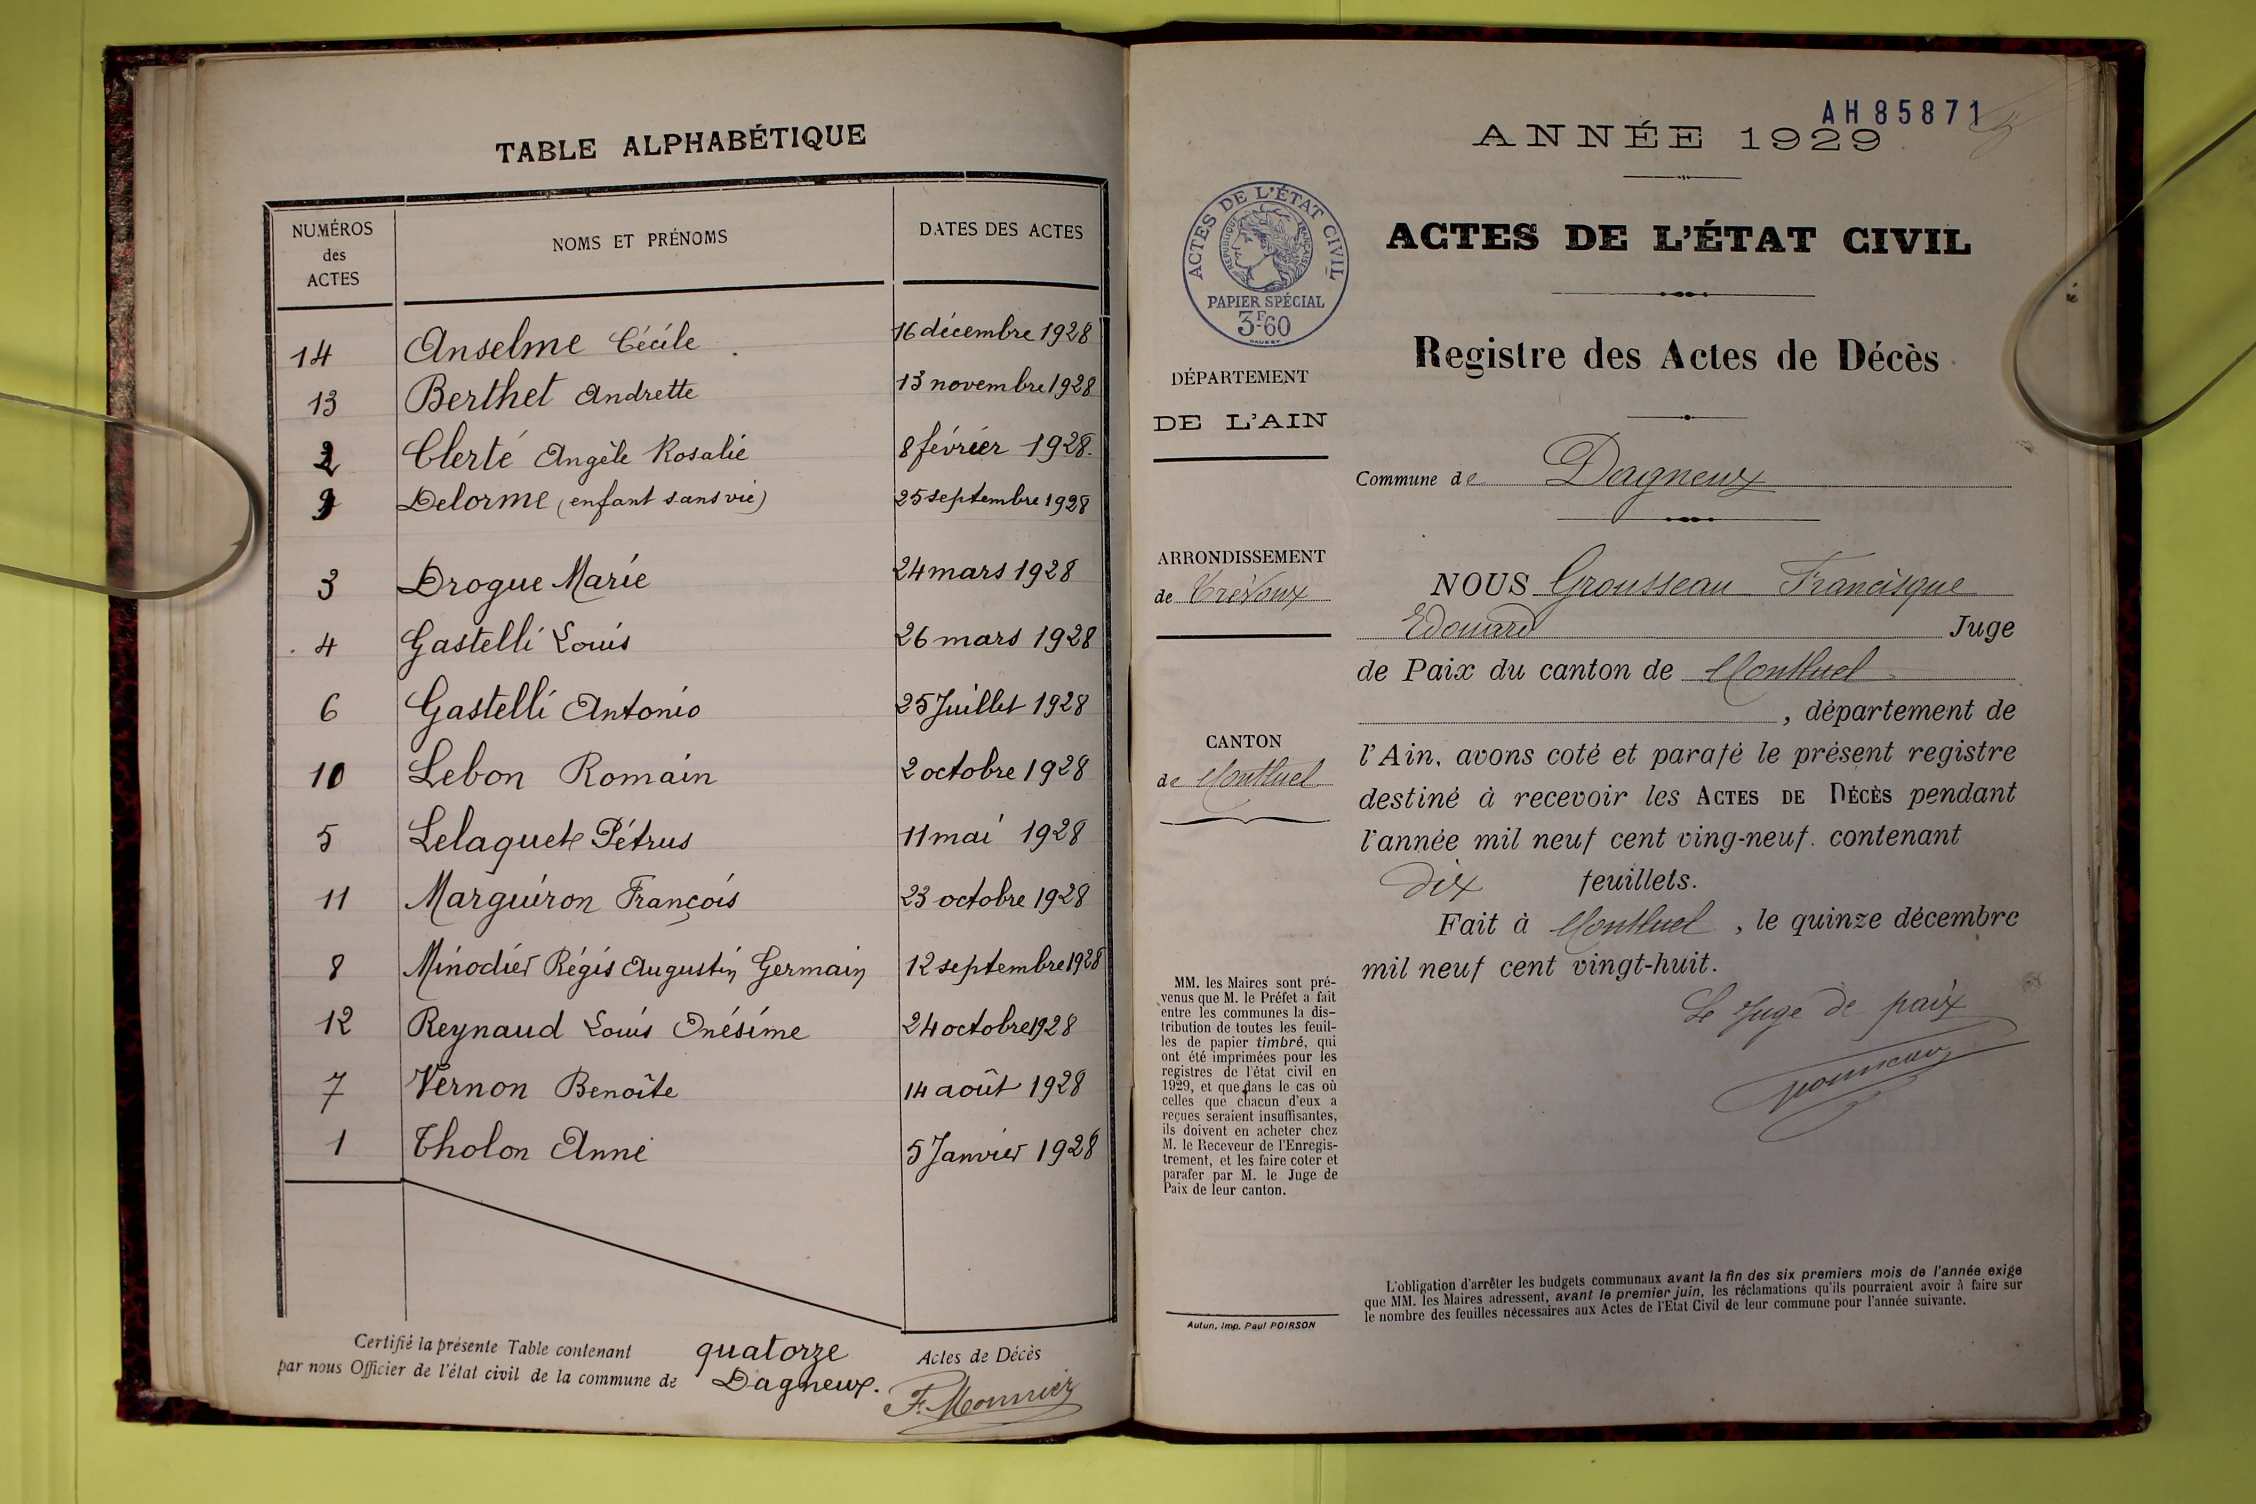 TABLE ALPHABÉTIQUE
NUMÉROS des ACTES NOMS ET PRÉNOMS DATES DES ACTES
14 Anselme Cécile 16 décembre 1928
13 Berthet Andrette 13 novembre 1928
2 Clerté Angèle Rosalie 8 février 1928.
9 Delorme (enfant sans vie) 25 septembre 1928
3 Drogue Marie 24 mars 1928
4 Gastelli Louis 26 mars 1928
6 Gastelli Antonio 25 Juillet 1928
10 Lebon Romain 2 octobre 1928
5 Lelaquet Pétrus 11 mai 1928
11 Marguiron François 23 octobre 1928
8 Minodier Régis Augustin Germain 12 septembre 1928
12 Reynaud Louis Onésime 24 octobre 1928
7 Vernon Benoîte 14 août 1928
1 Tholon Anne 5 Janvier 1928
Certifié la présente Table contenant quatorze Actes de Décès
par nous Officier de l'état civil de la commune de Dagneux.
F. Monnier
AH85871
ANNÉE 1929
ACTES DE L'ÉTAT CIVIL
RÉPUBLIQUE FRANÇAISE
PAPIER SPÉCIAL
3F60
ACTES DE L'ÉTAT CIVIL
Registre des Actes de Décès
DÉPARTEMENT
DE L'AIN
Commune de Dagneux
ARRONDISSEMENT
de Trévoux
CANTON
de Montluel
NOUS Grousseau Francisque
Edouard Juge
de Paix du canton de Montluel
, département de
l'Ain, avons coté et parafé le présent registre
destiné à recevoir les ACTES DE DÉCÈS pendant
l'année mil neuf cent ving-neuf. contenant
dix feuillets.
Fait à Montluel, le quinze décembre
mil neuf cent vingt-huit.
Le Juge de paix
MM. les Maires sont pré-
venus que M. le Préfet a fait
entre les communes la dis-
tribution de toutes les feuil-
les de papier timbré, qui
ont été imprimées pour les
registres de l'état civil en
1929, et que dans le cas où
celles que chacun d'eux a
reçues seraient insuffisantes,
ils doivent en acheter chez
M. le Receveur de l'Enregis-
trement, et les faire coter et
parafer par M. le Juge de
Paix de leur canton.
Autun, Imp. Paul POIRSON
L'obligation d'arrêter les budgets communaux avant la fin des six premiers mois de l'année exige
que MM. les Maires adressent, avant le premier juin, les réclamations qu'ils pourraient avoir à faire sur
le nombre des feuilles nécessaires aux Actes de l'Etat Civil de leur commune pour l'année suivante.